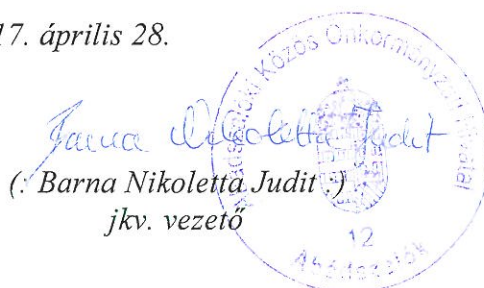 17. április 28.
Barna Nikoletta Judit
(: Barna Nikoletta Judit :)
jkv. vezető
Közös Önkormányzati Hivatal
12